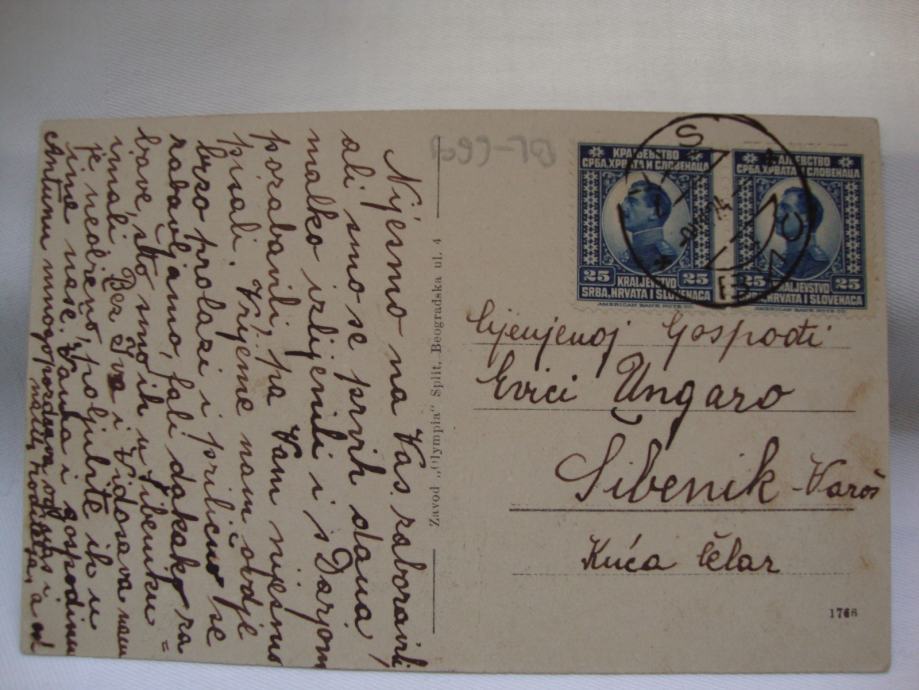 Nijesmo na Vas zaboravili,
ali smo se prvih dana
malko izlijenili i s Darjom
pozabavili, pa Vam nijesmo
pisali. Vrijeme nam ovdje
brzo prolazi i prilično se
zabavljamo, fali dakako za=
bave, što smo ih u Šibeniku
imali. Bez Iva i Vidosava nam
je neobično, poljubite ih u
ime naše. Vanda i gospodinu
Antunu mnogo pozdrava od
Zavod „Olympia“ Split, Beogradska ul. 4
КРАЉЕВСТВО
СРБА, ХРВАТА И СЛОВЕНАЦА
25 25
KRALJEVSTVO
SRBA, HRVATA I SLOVENACA
AMERICAN BANK NOTE CO.
КРАЉЕВСТВО
СРБА, ХРВАТА И СЛОВЕНАЦА
25
KRALJEVSTVO
SRBA, HRVATA I SLOVENACA
AMERICAN BANK NOTE CO.
Cijenjenoj Gospođi
Evici Ungaro
Šibenik - Varoš
Kuća Čelar
1766